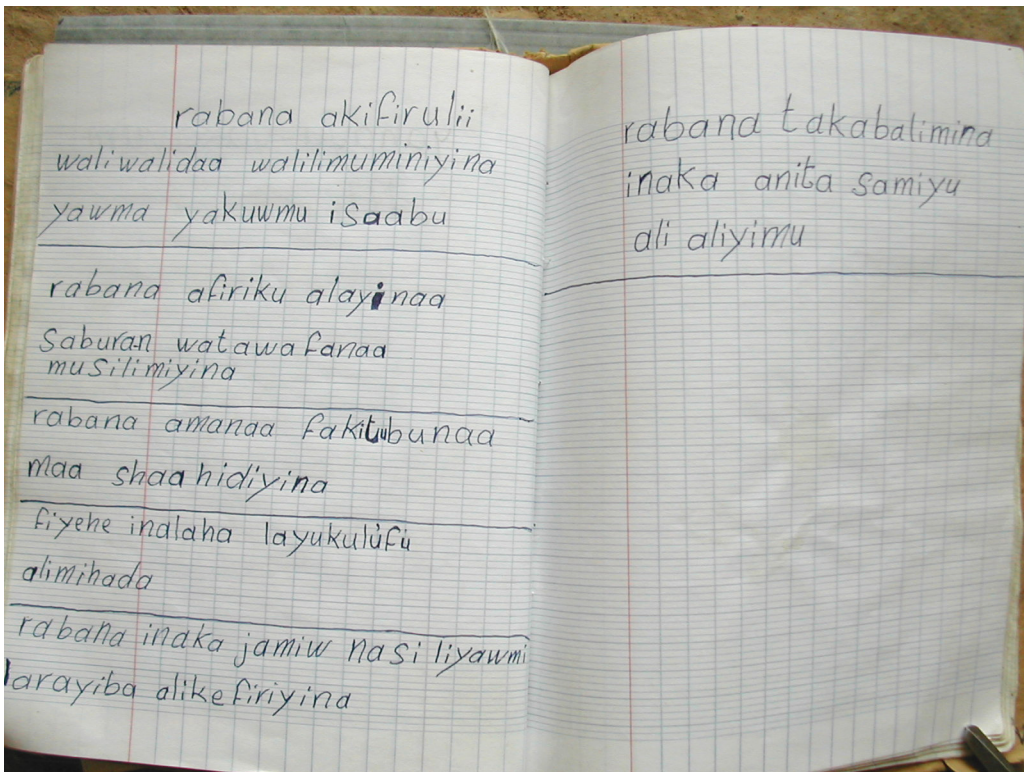 rabana akifirulii
waliwalidaa walilimuminiyina
yawma yakuwmu isaabu
rabana afiriku alayinaa
saburan watawafanaa
musilimiyina
rabana amanaa fakitubunaa
maa shaahidiyina
fiyehe inalaha layukulùfù
alimihada
rabana inaka jamiw nasi liyawmi
larayiba alikefiriyina
rabana takabalimina
inaka anita samiyu
ali aliyimu